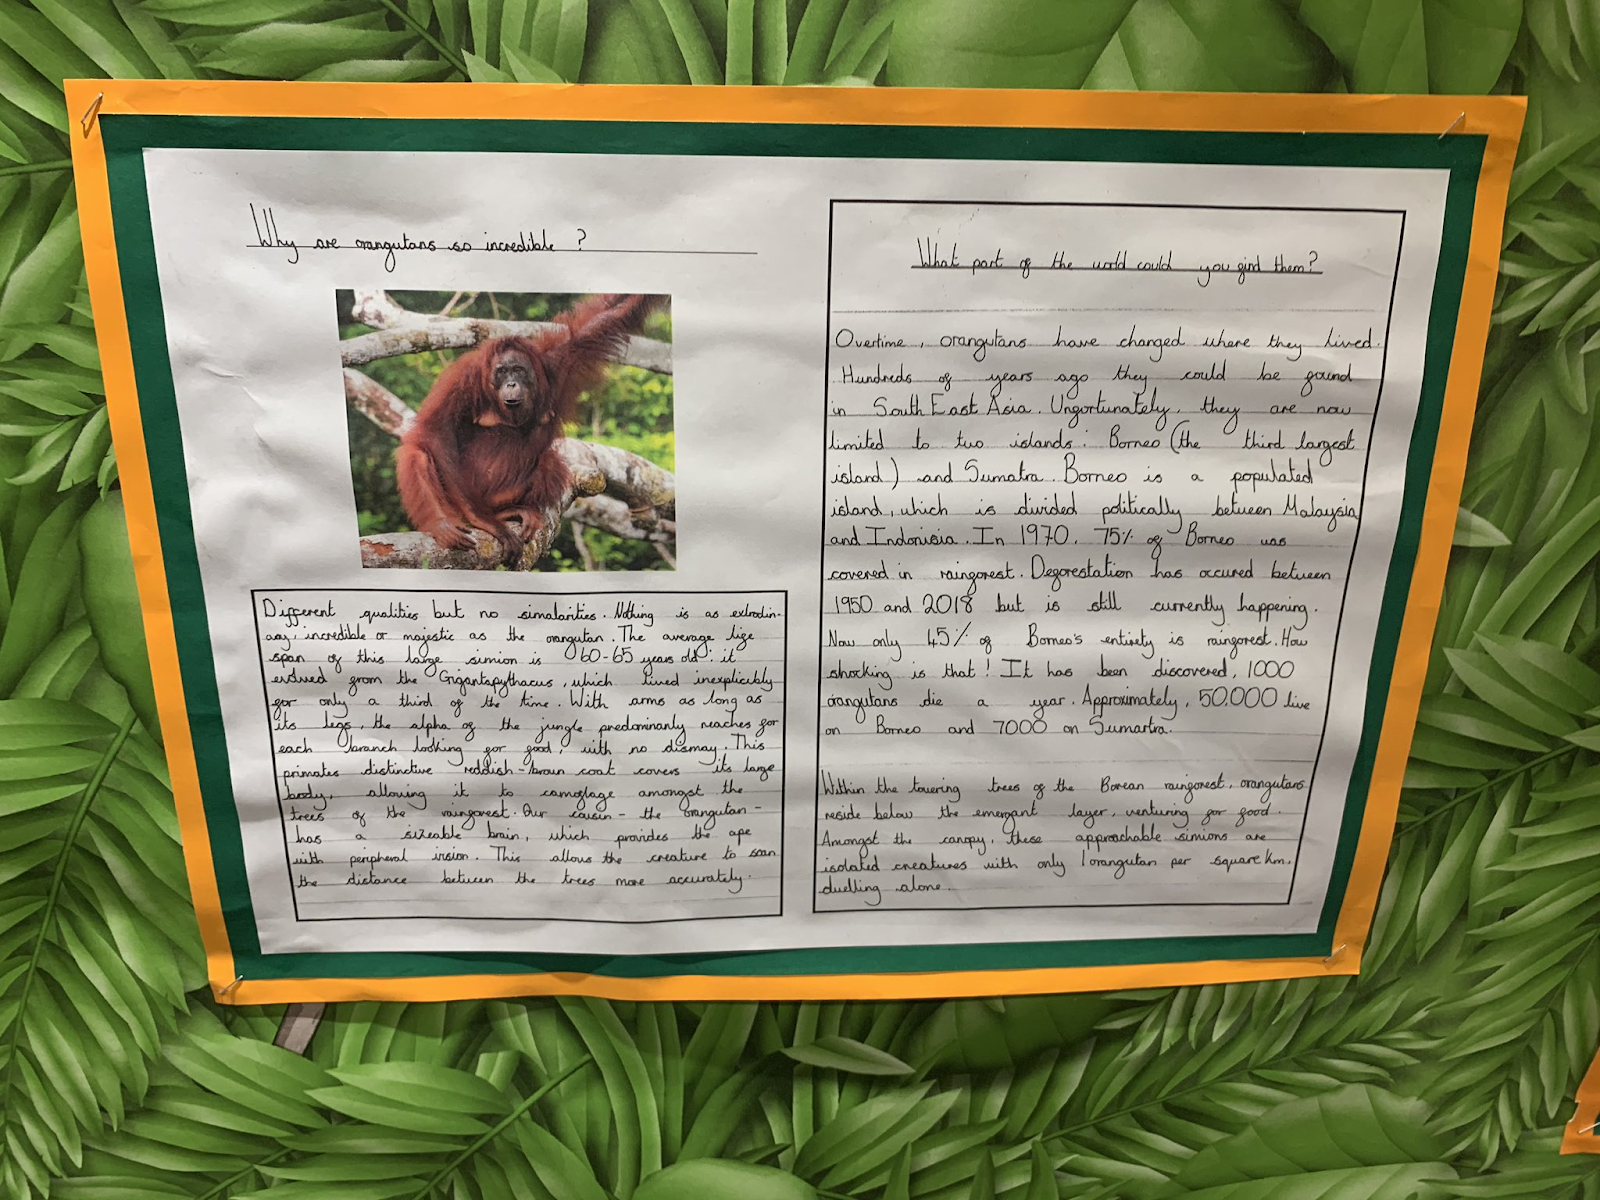 Why are orangutans so incredible?
Different qualities but no simalarities. Nothing is as extrodin-
ary, incredible or majestic as the orangutan. The average life
span of this large simion is 60-65 years old: it
evolved from the Gigantapythacus, which lived inexplicibly
for only a third of the time. With arms as long as
its legs, the alpha of the jungle predominanly reaches for
each branch looking for food, with no dismay. This
primates distinctive reddish-brown coat covers its large
body, allowing it to camoflage amongst the
trees of the rainforest. Our cousin- the orangutan-
has a sizeable brain, which provides the ape
with peripheral vision. This allows the creature to scan
the distance between the trees more accurately.
What part of the world could you find them?
Overtime, orangutans have changed where they lived.
Hundreds of years ago they could be found
in South East Asia. Unfortunately, they are now
limited to two islands: Borneo (the third largest
island) and Sumatra. Borneo is a populated
island, which is divided politically between Malaysia
and Indonisia. In 1970, 75% of Borneo was
covered in rainforest. Deforestation has occured between
1950 and 2018 but is still currently happening.
Now only 45% of Borneo's entirety is rainforest. How
shocking is that! It has been discovered, 1000
orangutans die a year. Approximately, 50.000 live
on Borneo and 7000 on Sumartra.
Within the towering trees of the Borean rainforest, orangutans
reside below the emergant layer, venturing for food.
Amongst the canopy, these approachable simions are
isolated creatures with only 1 orangutan per square km,
dwelling alone.